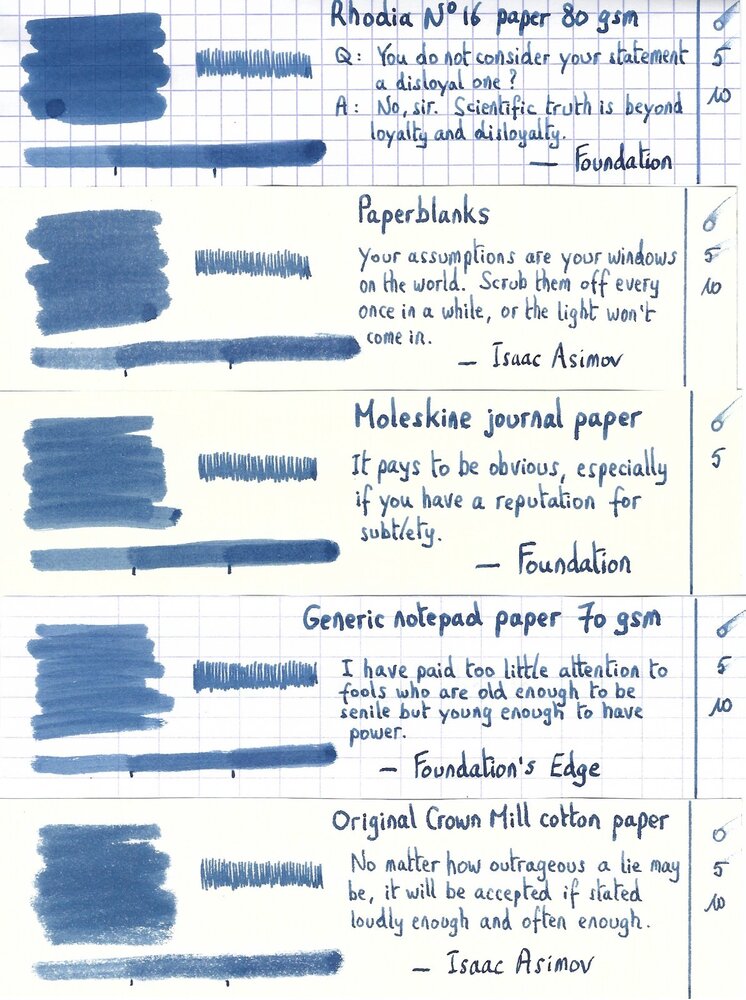 Rhodia N° 16 paper 80 gsm
Q: You do not consider your statement
a disloyal one?
A: No, sir. Scientific truth is beyond
loyalty and disloyalty.
— Foundation
0
5
10
Paperblanks
Your assumptions are your windows
on the world. Scrub them off every
once in a while, or the light won't
come in.
— Isaac Asimov
0
5
10
Moleskine journal paper
It pays to be obvious, especially
if you have a reputation for
subtlety.
— Foundation
0
5
Generic notepad paper 70 gsm
I have paid too little attention to
fools who are old enough to be
senile but young enough to have
power.
— Foundation's Edge
0
5
10
Original Crown Mill cotton paper
No matter how outrageous a lie may
be, it will be accepted if stated
loudly enough and often enough.
— Isaac Asimov
0
5
10